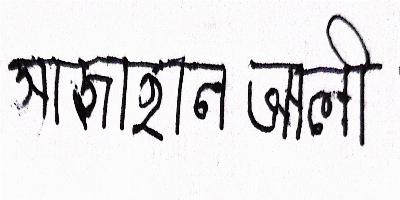 সাজাহান আলী